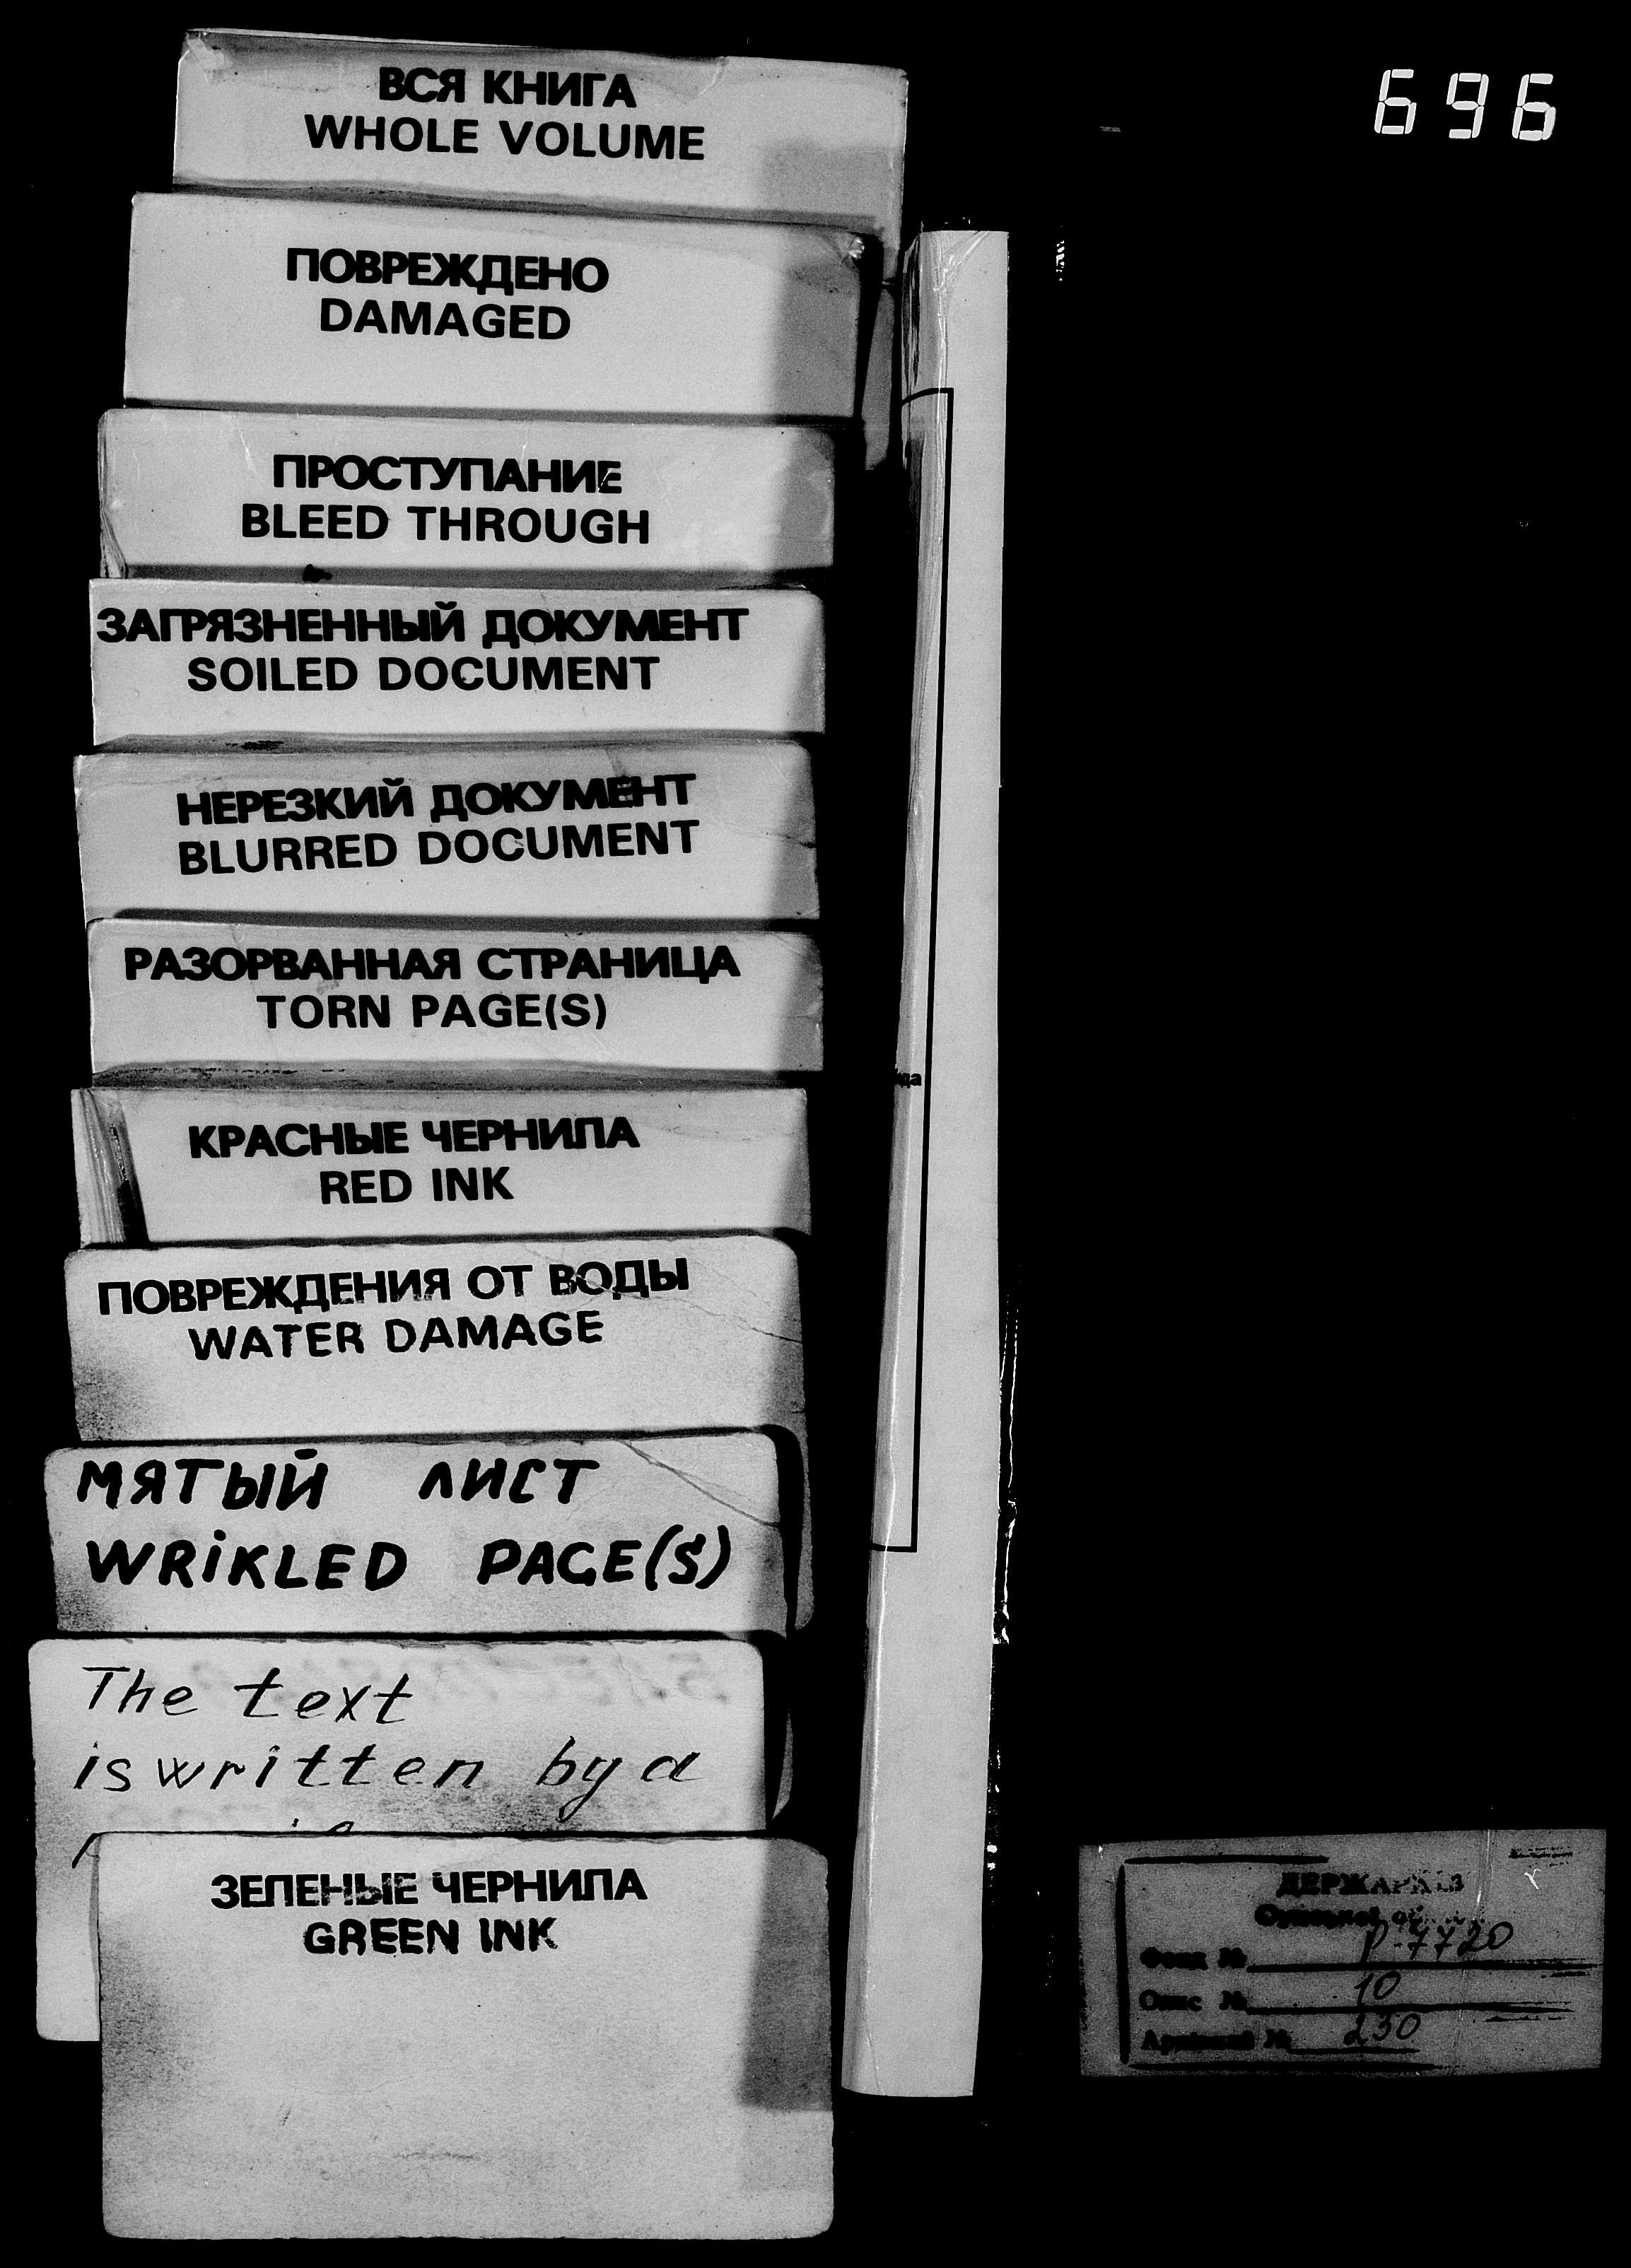 696
ВСЯ КНИГА
WHOLE VOLUME
ПОВРЕЖДЕНО
DAMAGED
ПРОСТУПАНИЕ
BLEED THROUGH
ЗАГРЯЗНЕННЫЙ ДОКУМЕНТ
SOILED DOCUMENT
НЕРЕЗКИЙ ДОКУМЕНТ
BLURRED DOCUMENT
РАЗОРВАННАЯ СТРАНИЦА
TORN PAGE(S)
КРАСНЫЕ ЧЕРНИЛА
RED INK
ПОВРЕЖДЕНИЯ ОТ ВОДЫ
WATER DAMAGE
МЯТЫЙ ЛИСТ
WRIKLED PAGE(S)
The text
is written by a
ЗЕЛЕНЫЕ ЧЕРНИЛА
GREEN INK
ДЕРЖАРХІВ
Фонд № Р-7720
Опис № 10
№ 230